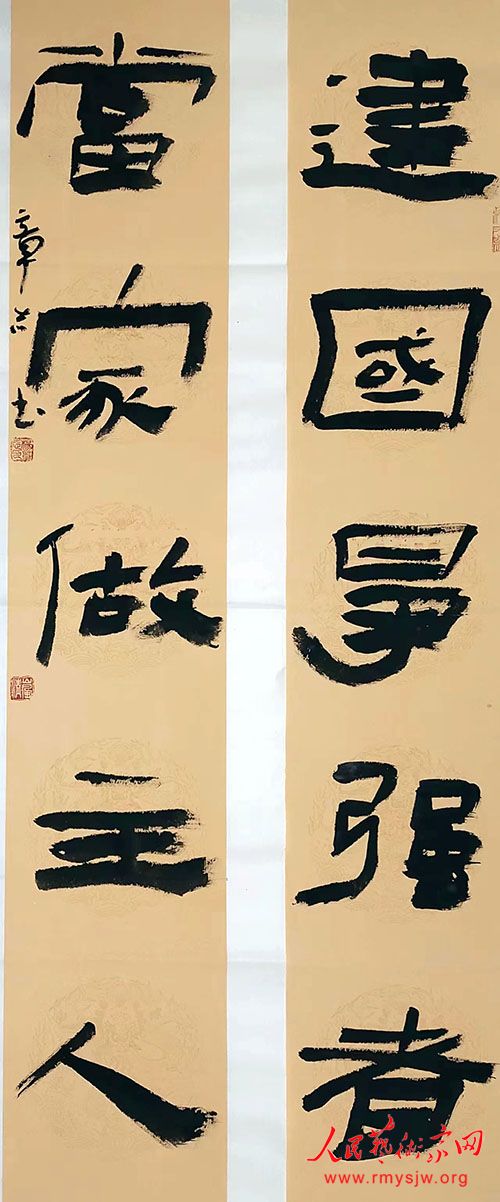 建國争强者
當家做主人
章
书
人民藝術家网
www.rmysjw.org